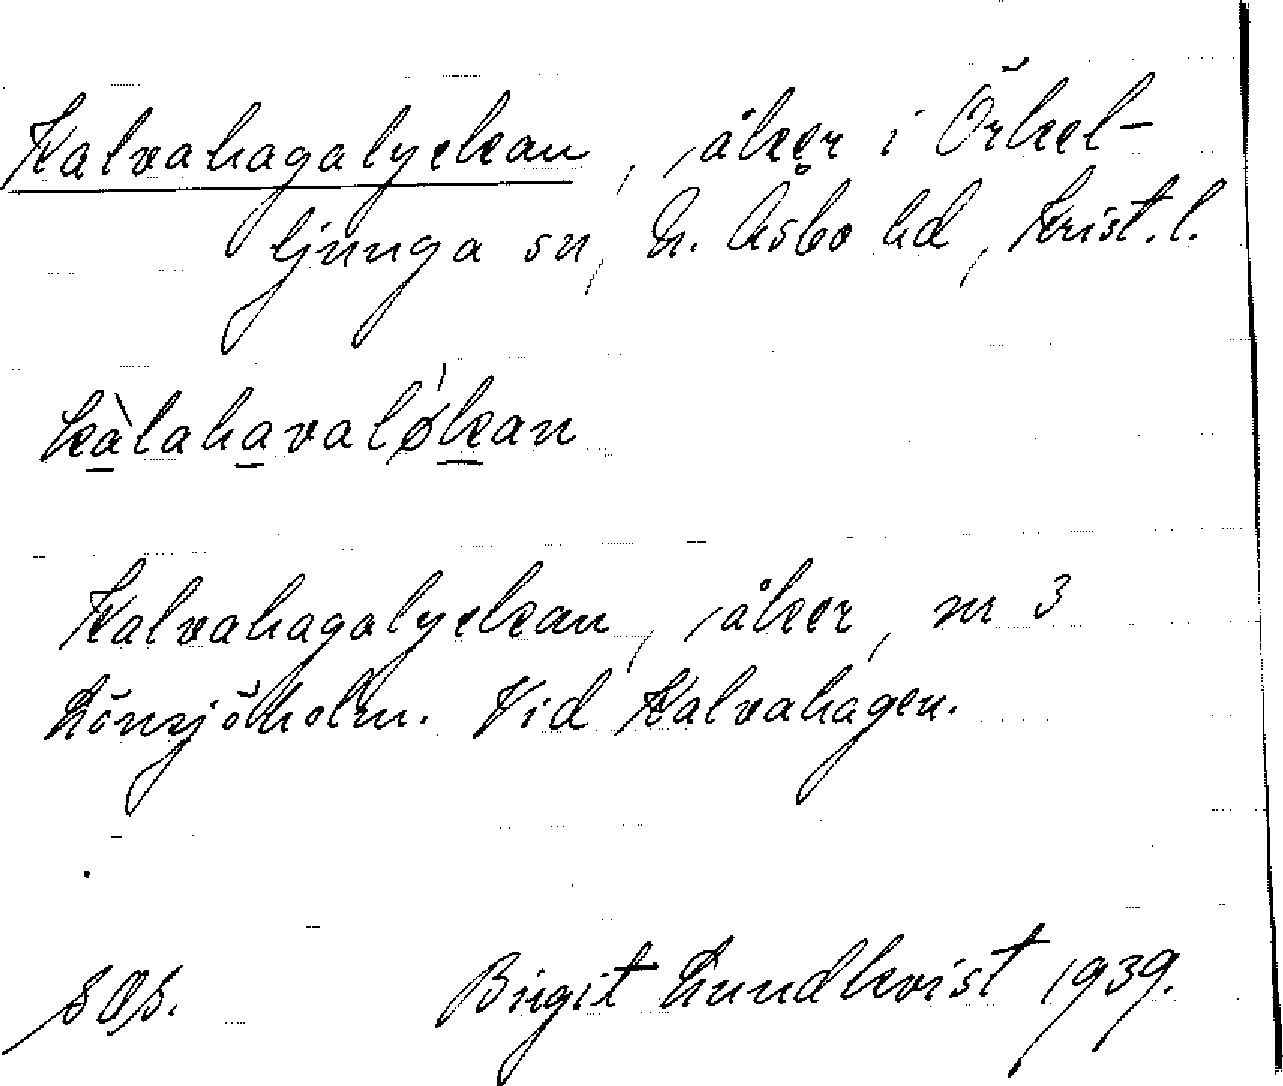 Kalvahagalyckan, åker i Örkel-
ljunga sn, N. Åsbo hd, Krist. l.
kàlahavaló̷kan
Kalvahagalyckan, åker, nr 3
Lönsjöholm. Vid Kalvahagen.
SOS. Birgit Lundkvist 1939.